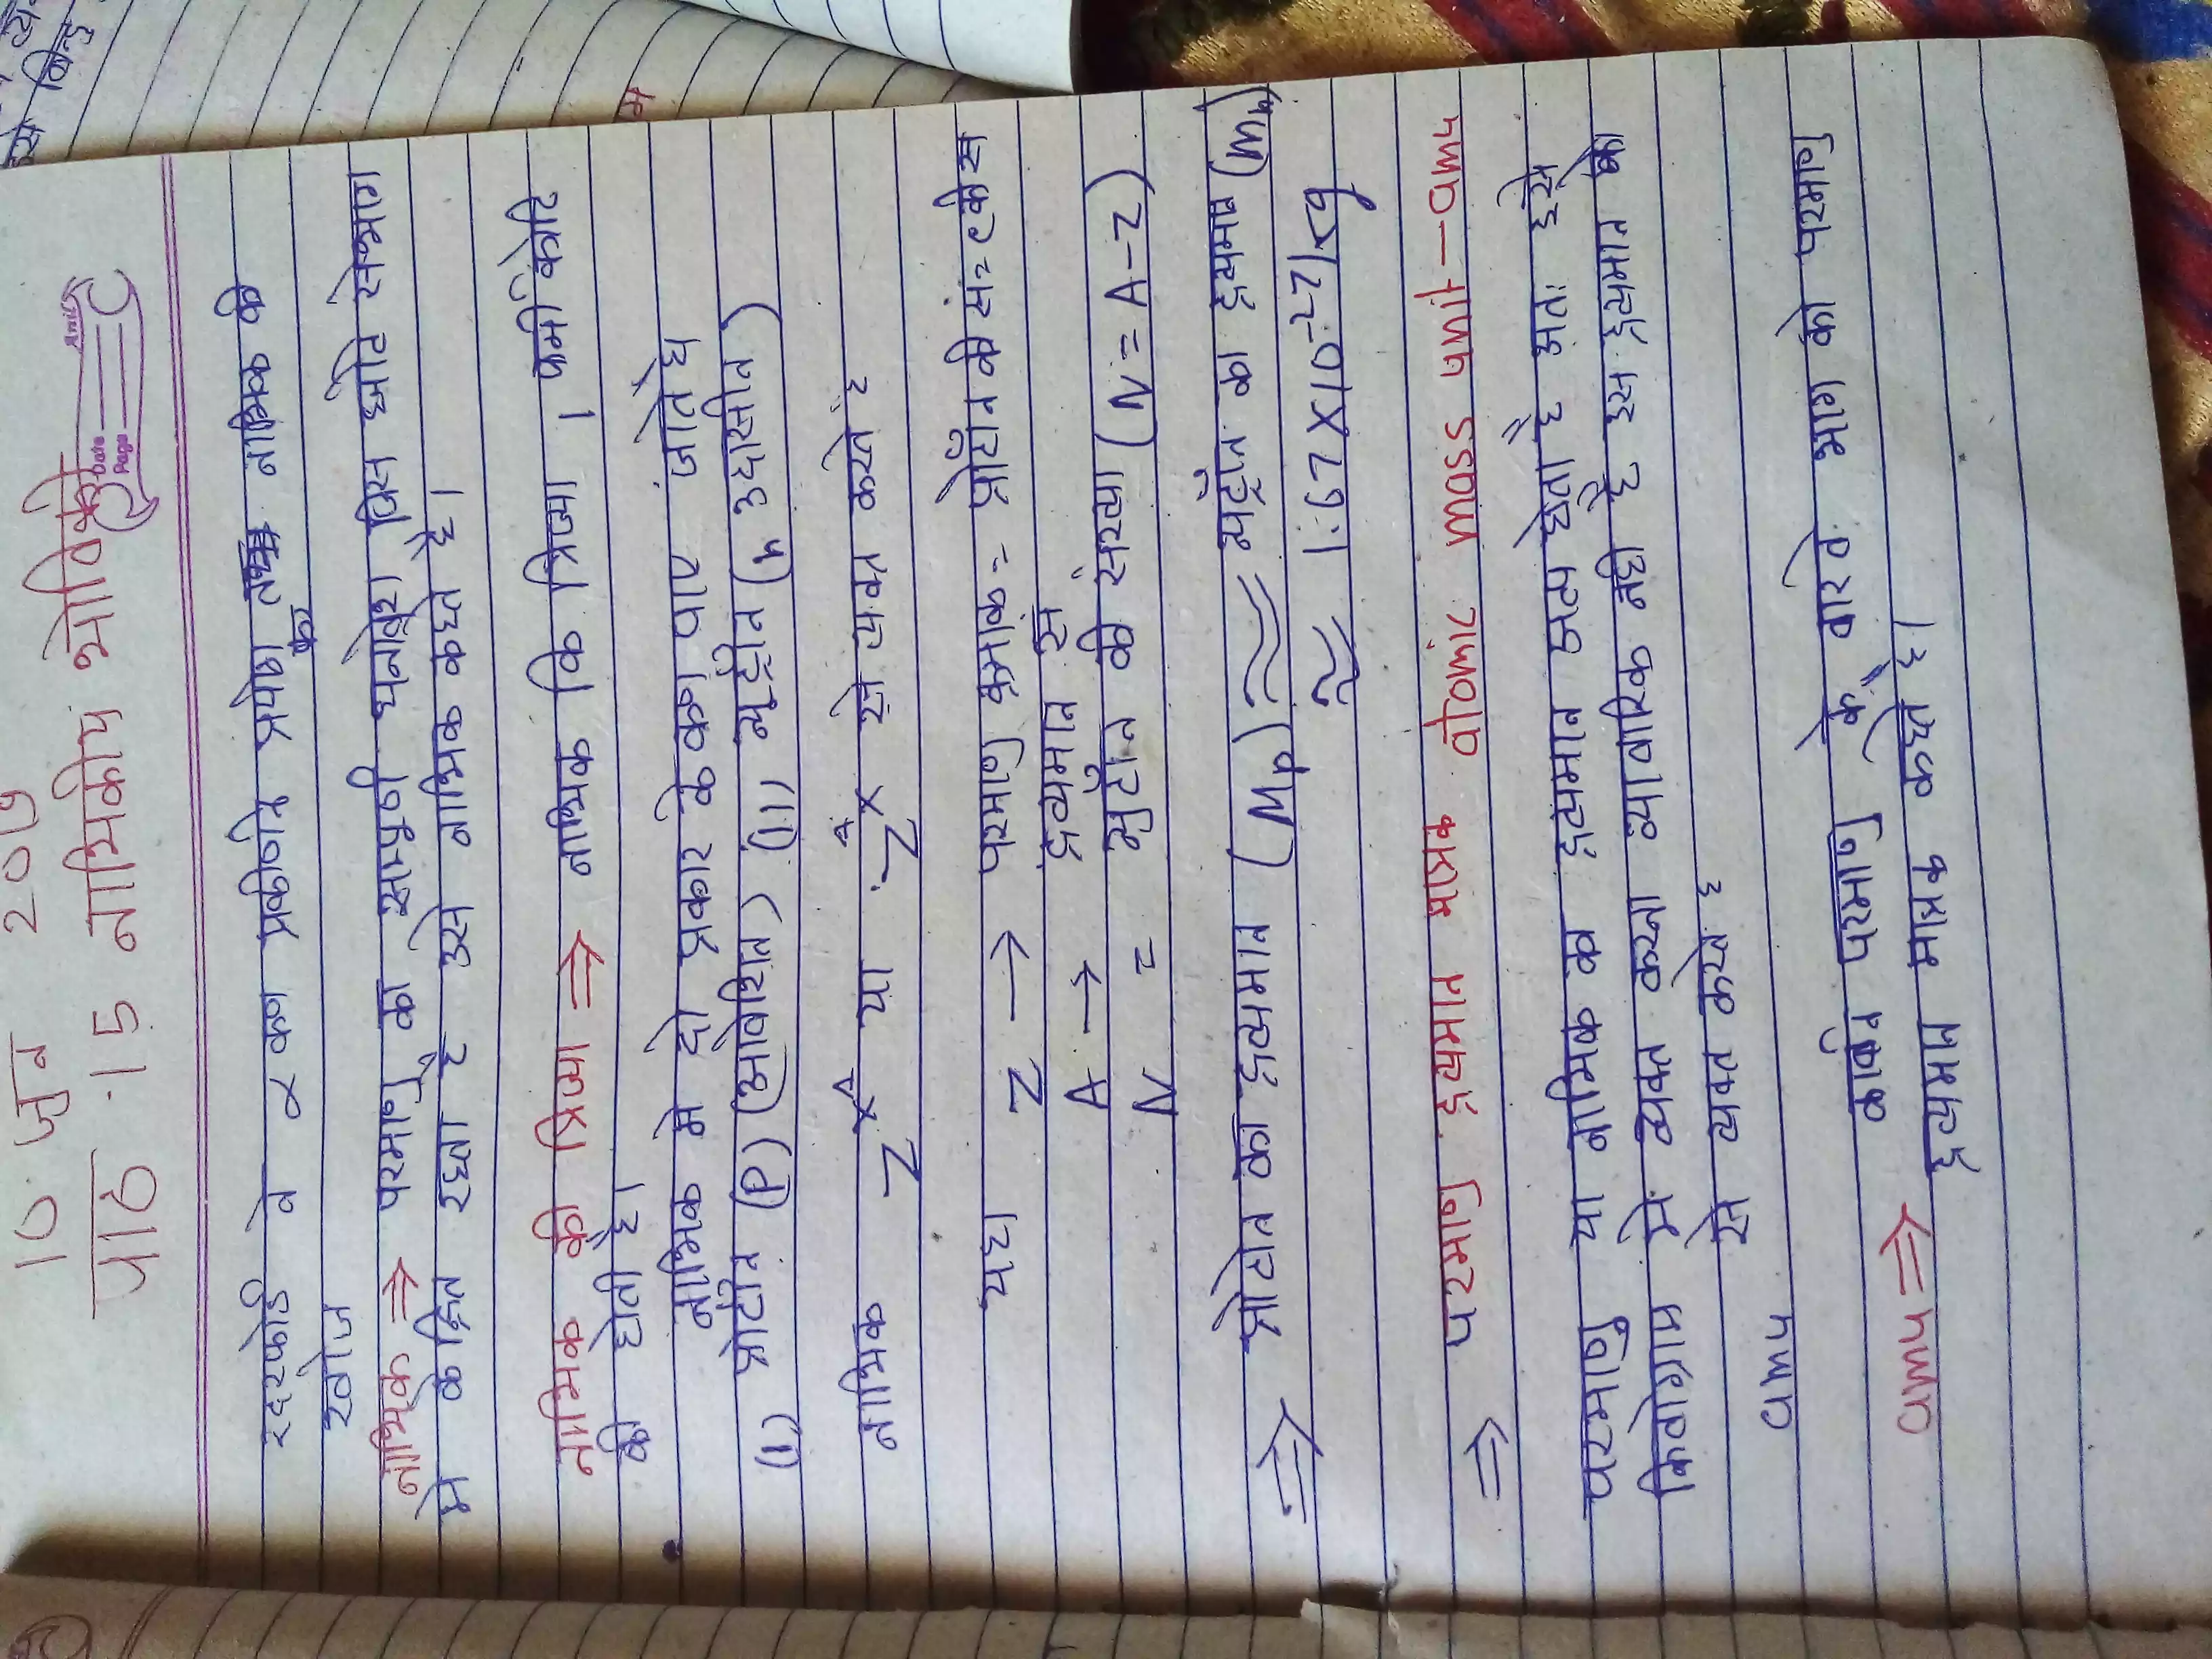 10 जुन 2019
पाठ .15 नाभिकीय भोतिकी
Date
Page
रदरफोर्ड ने α कण प्रकीर्णन प्रयोग नाभिक की
खोज
नाभिक ⇒ परमाणु का सम्पुर्ण धनावेश जिस छोटे से भाग
मे केन्द्रित रहता है उसे नाभिक कहते है।
नाभिक की त्रिज्या ⇒ नाभिक कि त्रिज्या 1 फर्मी कोटि
की होती है।
नाभिक मे दो प्रकार के कण पाए जाते है
(i) प्रोटॉन (P) (आवेशित) (ii) न्यूट्रॉन (n उदासीन)
नाभिक Z X^A या Z^A X से व्यक्त करते है
यहा Z → परमाणु क्रमांक = प्रोटॉन की सं.
A → द्रव्यमान सं
N = न्युट्रॉन की संख्या (N = A-Z)
⇒ प्रोटोन का द्रव्यमान (Mp) ≈ न्यूट्रॉन का द्रव्यमान (Mn)
≈ 1.67 X10^-27 kg
⇒ परमाणु द्रव्यमान मात्रक atomic mass unit-amu
परमाणु या नाभिक का द्रव्यमान अल्प होता है अतः इसे
किलोग्राम मे व्यक्त करना व्यावारिक नही है इस द्रव्यमान को
amu से व्यक्त करते है
amu ⇒ कार्बन परमाणु के बारवे भाग को परमाणु
द्रव्यमान मात्रक कहते है।